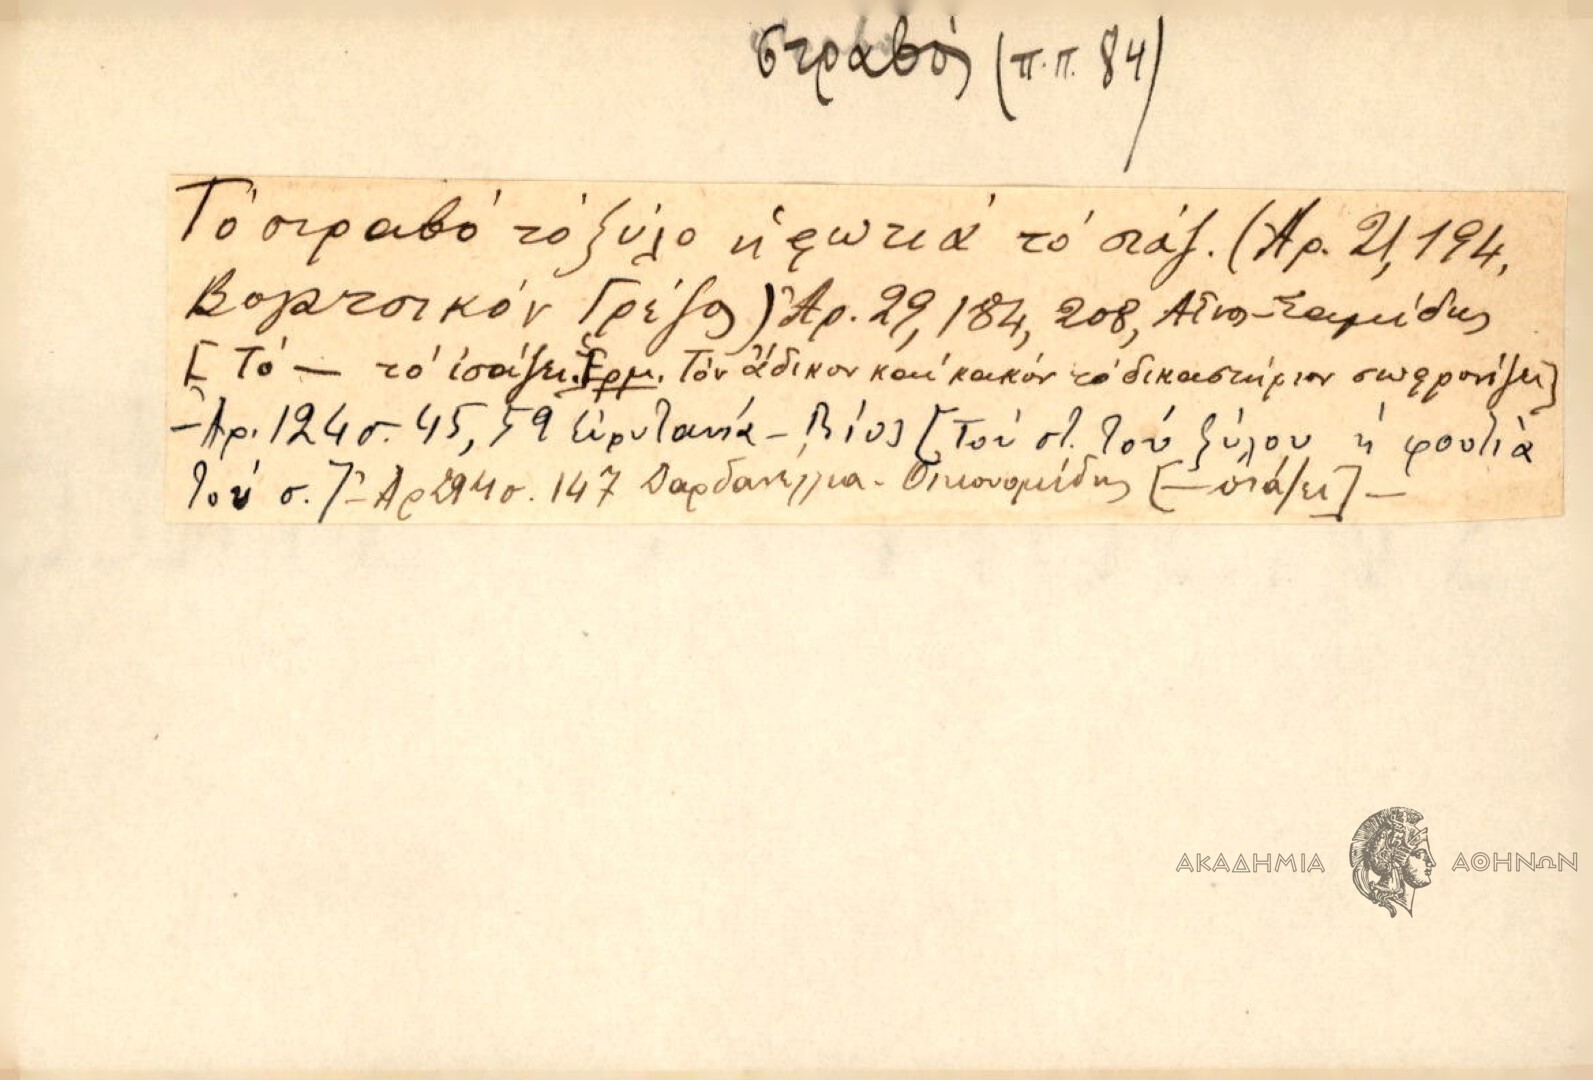 στραβός (π.π. 84)
Τό στραβό τό ξύλο ἡ φωτιά τό σιάζ. (Ἀρ. 21, 194,
Βογατσικόν Γρέζος) Ἀρ. 29, 184, 208, Αἶνος-Σαμίδης
[Τό — τό ἰσάζει. Ἑρμ. Τόν ἄδικον καί κακόν τό δικαστήριον σωφρονίζει]
- Ἀρ. 124 σ. 45, 59 Εὐρυτανία - Βίος [Τού στ. τού ξύλου ἡ φουτιά
τού σ.] - Ἀρ 294 σ. 147 Δαρδανέλλια - Οἰκονομίδης [— σιάζει] —
ΑΚΑΔΗΜΙΑ ΑΘΗΝΩΝ